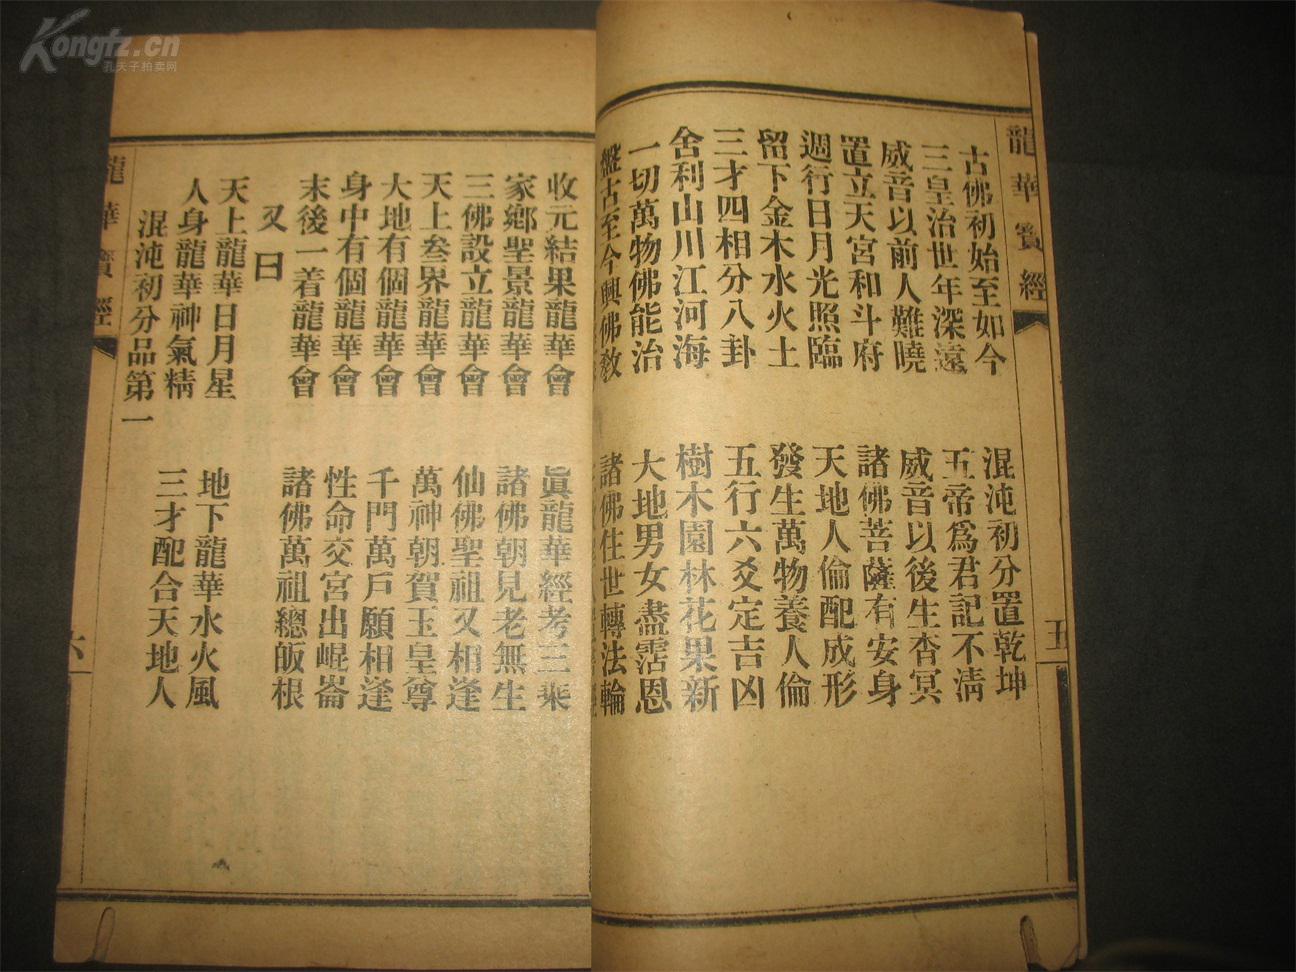 Kongfz.cn
孔夫子拍卖网
龍華寶經
五
古佛初始至如今 混沌初分置乾坤
三皇治世年深遠 五帝爲君記不清
威音以前人難曉 威音以後生杳冥
置立天宮和斗府 諸佛菩薩有安身
週行日月光照臨 天地人倫配成形
留下金木水火土 發生萬物養人倫
三才四相分八卦 五行六爻定吉凶
舍利山川江河海 樹木園林花果新
一切萬物佛能治 大地男女盡霑恩
盤古至今興佛敎 諸佛住世轉法輪
收元結果龍華會 眞龍華經考三乘
家鄉聖景龍華會 諸佛朝見老無生
三佛設立龍華會 仙佛聖祖又相逢
天上叄界龍華會 萬神朝賀玉皇尊
大地有個龍華會 千門萬戶願相逢
身中有個龍華會 性命交宮出崐崙
末後一着龍華會 諸佛萬祖總皈根
又曰
天上龍華日月星 地下龍華水火風
人身龍華神氣精 三才配合天地人
混沌初分品第一
龍華寶經
六